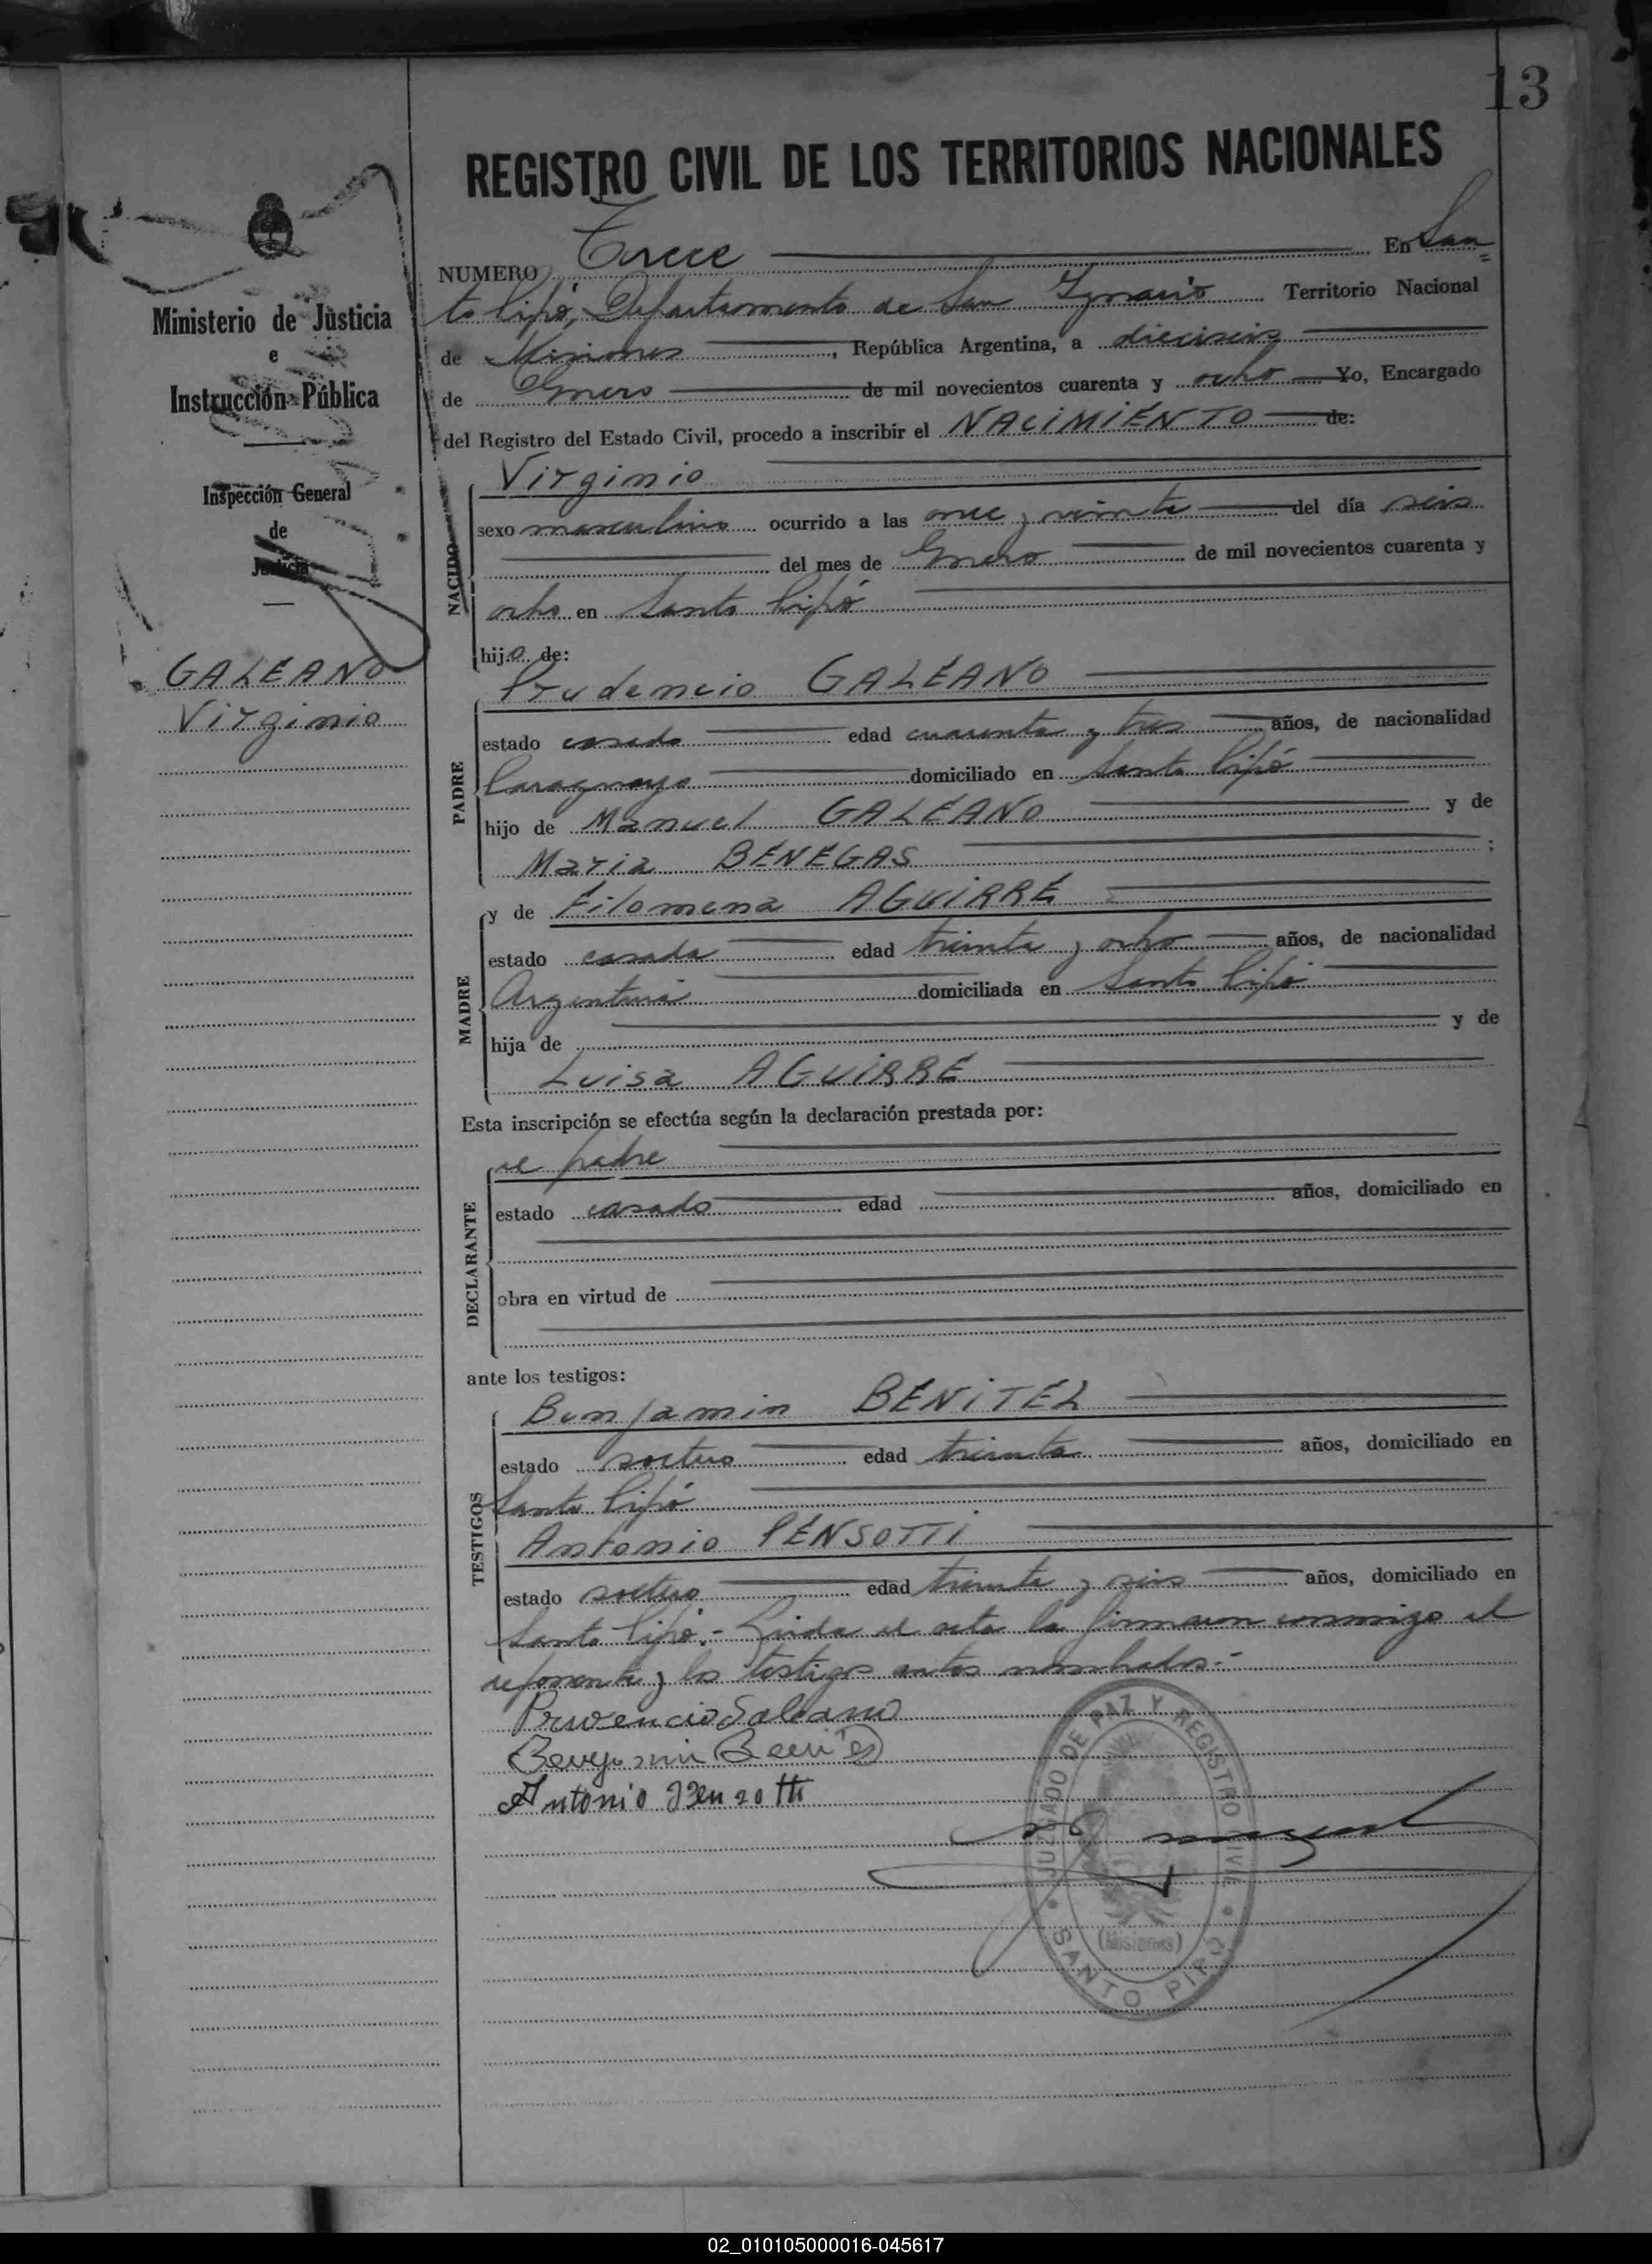 13
REGISTRO CIVIL DE LOS TERRITORIOS NACIONALES
NUMERO Trece En San
to Pipó, Departamento de San Ignacio Territorio Nacional
de Misiones, República Argentina, a dieciseis
de Enero de mil novecientos cuarenta y ocho Yo, Encargado
del Registro del Estado Civil, procedo a inscribir el NACIMIENTO de:
Ministerio de Justicia
e
Instrucción Pública
Inspección General
de
Justicia
GALEANO
Virginio
NACIDO
Virginio
sexo masculino ocurrido a las once y veinte del día seis
del mes de Enero de mil novecientos cuarenta y
ocho en Santo Pipó
hijo de:
PADRE
Prudencio GALEANO
estado casado edad cuarenta y tres años, de nacionalidad
Paraguaya domiciliado en Santo Pipó
hijo de Manuel GALEANO y de
Maria BENEGAS ;
MADRE
y de Filomena AGUIRRE
estado casada edad treinta y ocho años, de nacionalidad
Argentina domiciliada en Santo Pipó
hija de y de
Luisa AGUIRRE
Esta inscripción se efectúa según la declaración prestada por:
DECLARANTE
el padre
estado casado edad años, domiciliado en
obra en virtud de
ante los testigos:
TESTIGOS
Benjamin BENITEZ
estado soltero edad treinta años, domiciliado en
Santo Pipó
Antonio PENSOTTI
estado soltero edad treinta y seis años, domiciliado en
Santo Pipó.- Leida el acta la firmaron conmigo el
exponente y los testigos antes nombrados.-
Pruvencio Galeano
Antonio Penzotti
JUZGADO DE PAZ Y REGISTRO CIVIL
(Misiones)
SANTO PIPÓ
02_010105000016-045617